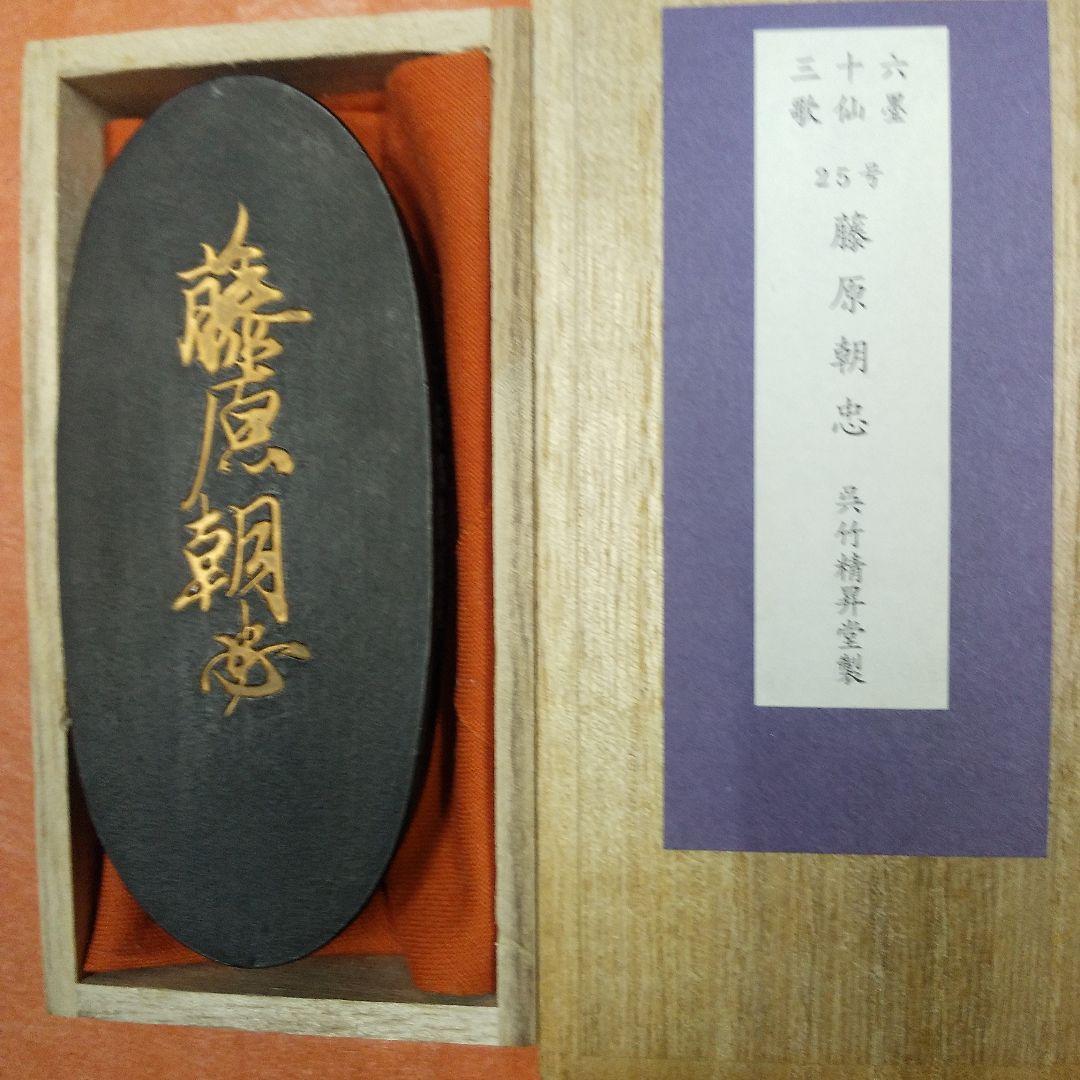 藤原朝忠
三十六
歌仙墨
25号
藤原朝忠
呉竹精昇堂製